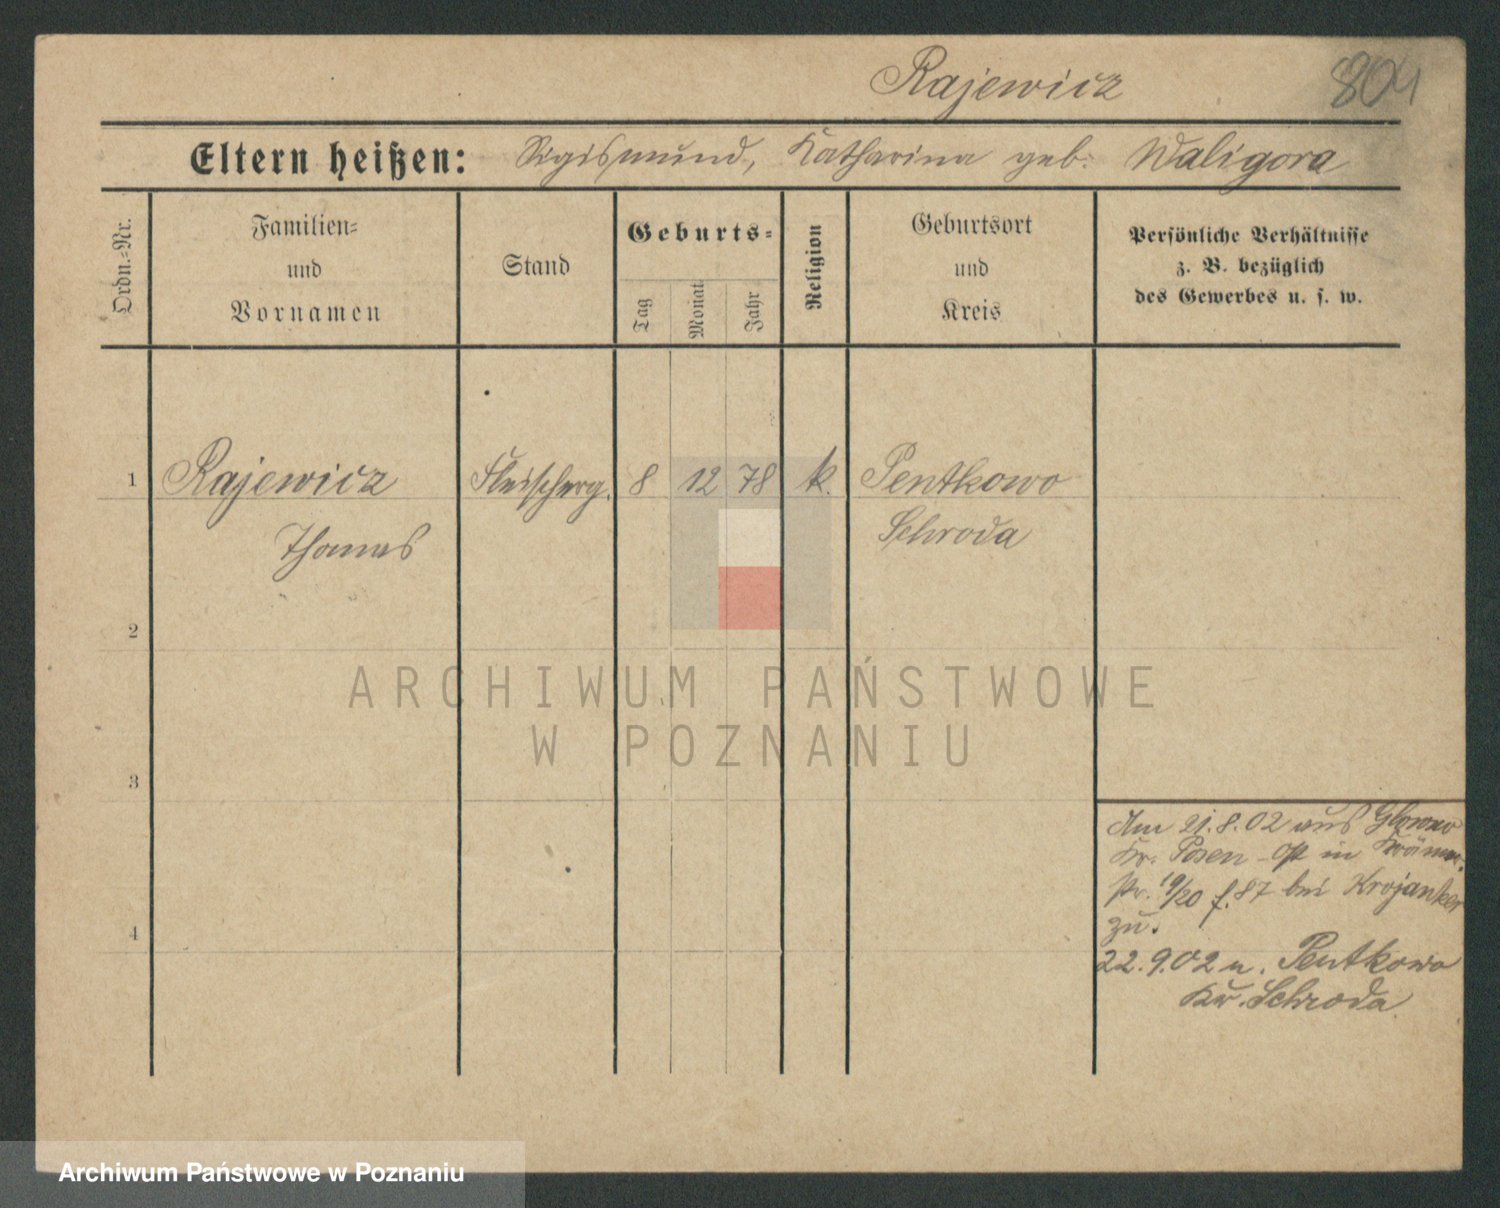 Rajewicz
804
Eltern heißen: Sigismund, Katharina geb. Waligora
Ordn.-Nr.
Familien-
und
Vornamen
Stand
Geburts-
Tag
Monat
Jahr
Religion
Geburtsort
und
Kreis
Persönliche Verhältnisse
z. B. bezüglich
des Gewerbes u. s. w.
1 Rajewicz Fleischerg. 8 12 78 k. Pentkowo
Thomas Schroda
2
3
4
Am 21.8.02 aus Glowno
Kr. Posen Ost in Krämer-
str. 19/20 f. 87 bei Krojanker
zu.
22.9.02 n. Pentkowo
Kr. Schroda
ARCHIWUM PAŃSTWOWE
W POZNANIU
Archiwum Państwowe w Poznaniu